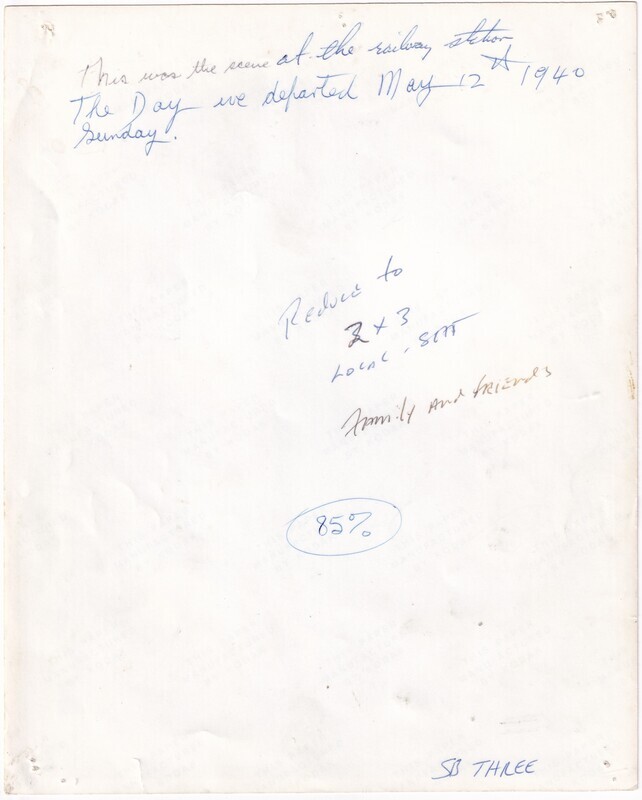 This was the scene at the railway station
The Day we departed May 12th 1940
Sunday.
Reduce to
2 x 3
LOCAL. SEPT
Family and friends
85%
SB THREE